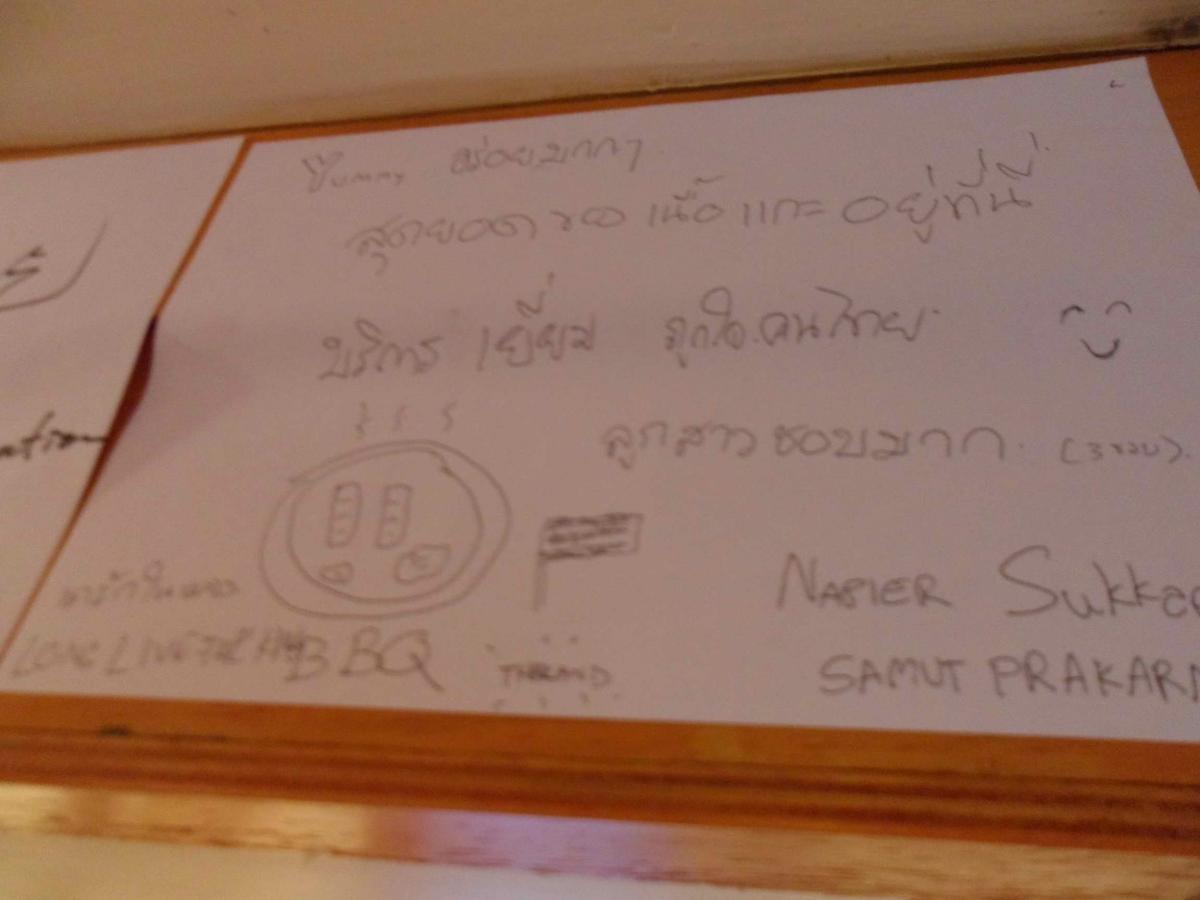 Yummy อร่อยมากๆ
สุดยอดของเนื้อแกะอยู่ที่นี่
บริการ เยี่ยม ถูกใจ.คนไทย.
ลูกสาวชอบมาก. (3ขวบ).
LONG LIVE THE BBQ
THAILAND
NAPIER Sukk
SAMUT PRAKARN